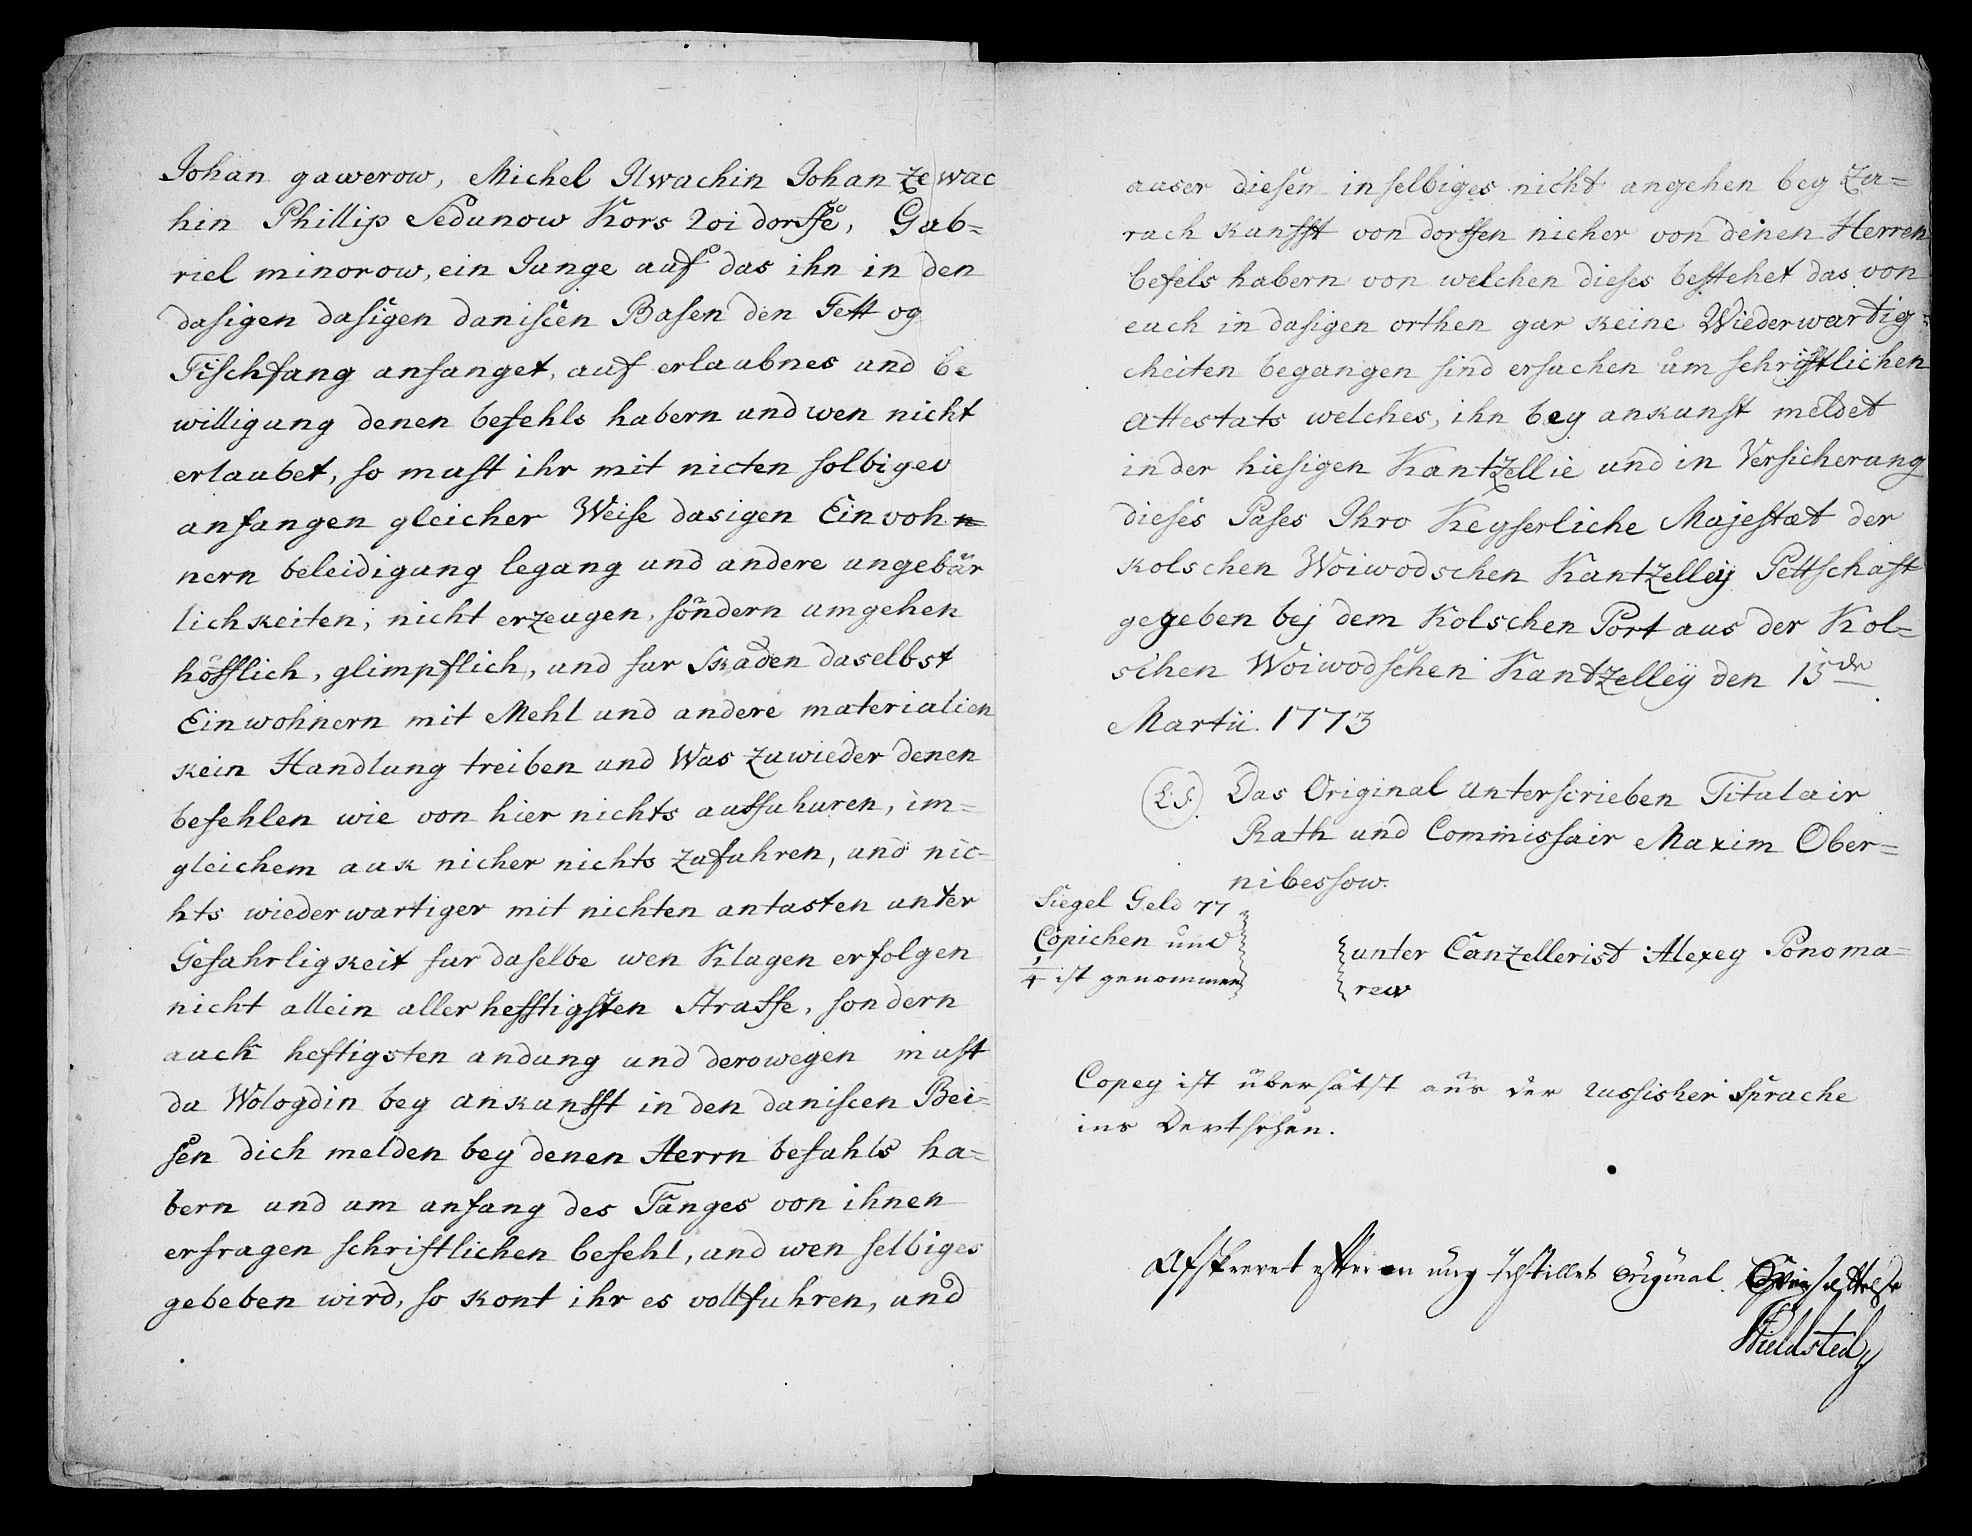 Johan gawerow, Michel Ilwachin Johan Zewac
hin Phillip Sedunow Kors 201 dorffe, Gab=
riel minorow, ein Junge auf das ihn in den
dasigen dasigen daniscen Basen den Fett og
Fischfang anfanget, auf erlaubnes und be
willigung denen befehls habern und wen nicht
erlaubet, so must ihr mit nicten solbiger
anfangen gleicher Weise dasigen Einwoh=
nern beleidigung legang und andere ungebür
lichkeiten; nicht erzeugen, sondern umgehen
höfflich, glimpflich, und fur Skaden daselbst
Einwohnern mit Mehl und andere materialien
kein Handlung treiben und Was zuwieder denen
befehlen wie von hier nichts ausfuhuren, im=
gleichem auk nicher nichts zufuhren, und nic=
hts wiederwartiger mit nichten antasten unter
Gefahrligkeit fur daselbe wen Klagen erfolgen
nicht allein aller hefftigsten Straffe, sondern
auch heftigsten andung und derowegen must
du Wologdin bey ankunfft in den daniscen Bei=
sen dich melden bey denen Herrn befahls ha=
bern und um anfang des Fanges von ihnen
erfragen schriftlichen befehl, und wen selbiges
gebeben wird, so kont ihr es vollfuhren, und
auser diesen in selbiges nicht angehen bey Zu=
ruch kunfft von dorffen nicher von denen Herren
befels habern von welchen dieses bestehet das von
euch in dasigen orthen gar keine Wiederwartig=
cheiten begangen sind ersuchen um schriftlichen
Attestats welches, ihn bey ankunft meldet
in der hiesigen Kantzellie und in Versicherung
dieses Pases Ihro Keyserliche Majestæt der
kolschen Woiwodschen Kantzelley Pettschaft
gegeben bej dem Kolschen Port aus der Kol=
schen Woiwodschen Kantzelley den 15de
Martii. 1773
(L.S.) Das Original unterscrieben Titulair
Rath und Commissair Maxim Ober=
nibessow.
Siegel Geld 77
Copichen und
1/4 ist genommen
unter Canzellerist Alexey Ponoma=
rew
Copey ist übersätst aus der russisher Sprache
ins Deutschen.
original.